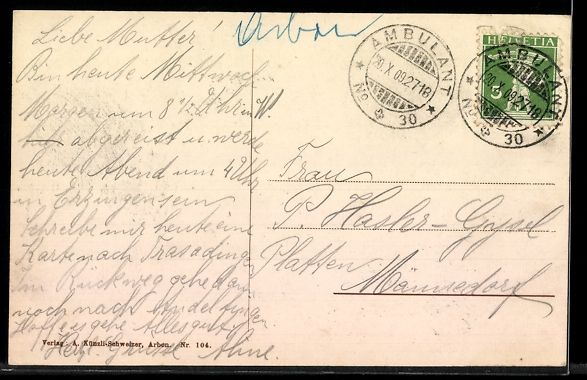 Arbon
Liebe Mutter!
Bin heute Mittwoch
Morgen um 8 1/2 Uhr in W.
abgereist u. werde
heute Abend um 4 Uhr
in Erzingen sein
Schreibe mir heute eine
Karte nach Trasadingen
Im Rückweg gehe dann
noch nach Andelfingen
Hoffe es gehe Alles gut
Herzl. Grüsse Aline.
Verlag: A. Künzli-Schweizer, Arbon. Nr. 104.
AMBULANT
20.X.09.271B
No. 30
HELVETIA
5
AMBULANT
20.X.09.271B
No. 30
Frau
P. Hasler-Gysel
Platten
Männedorf